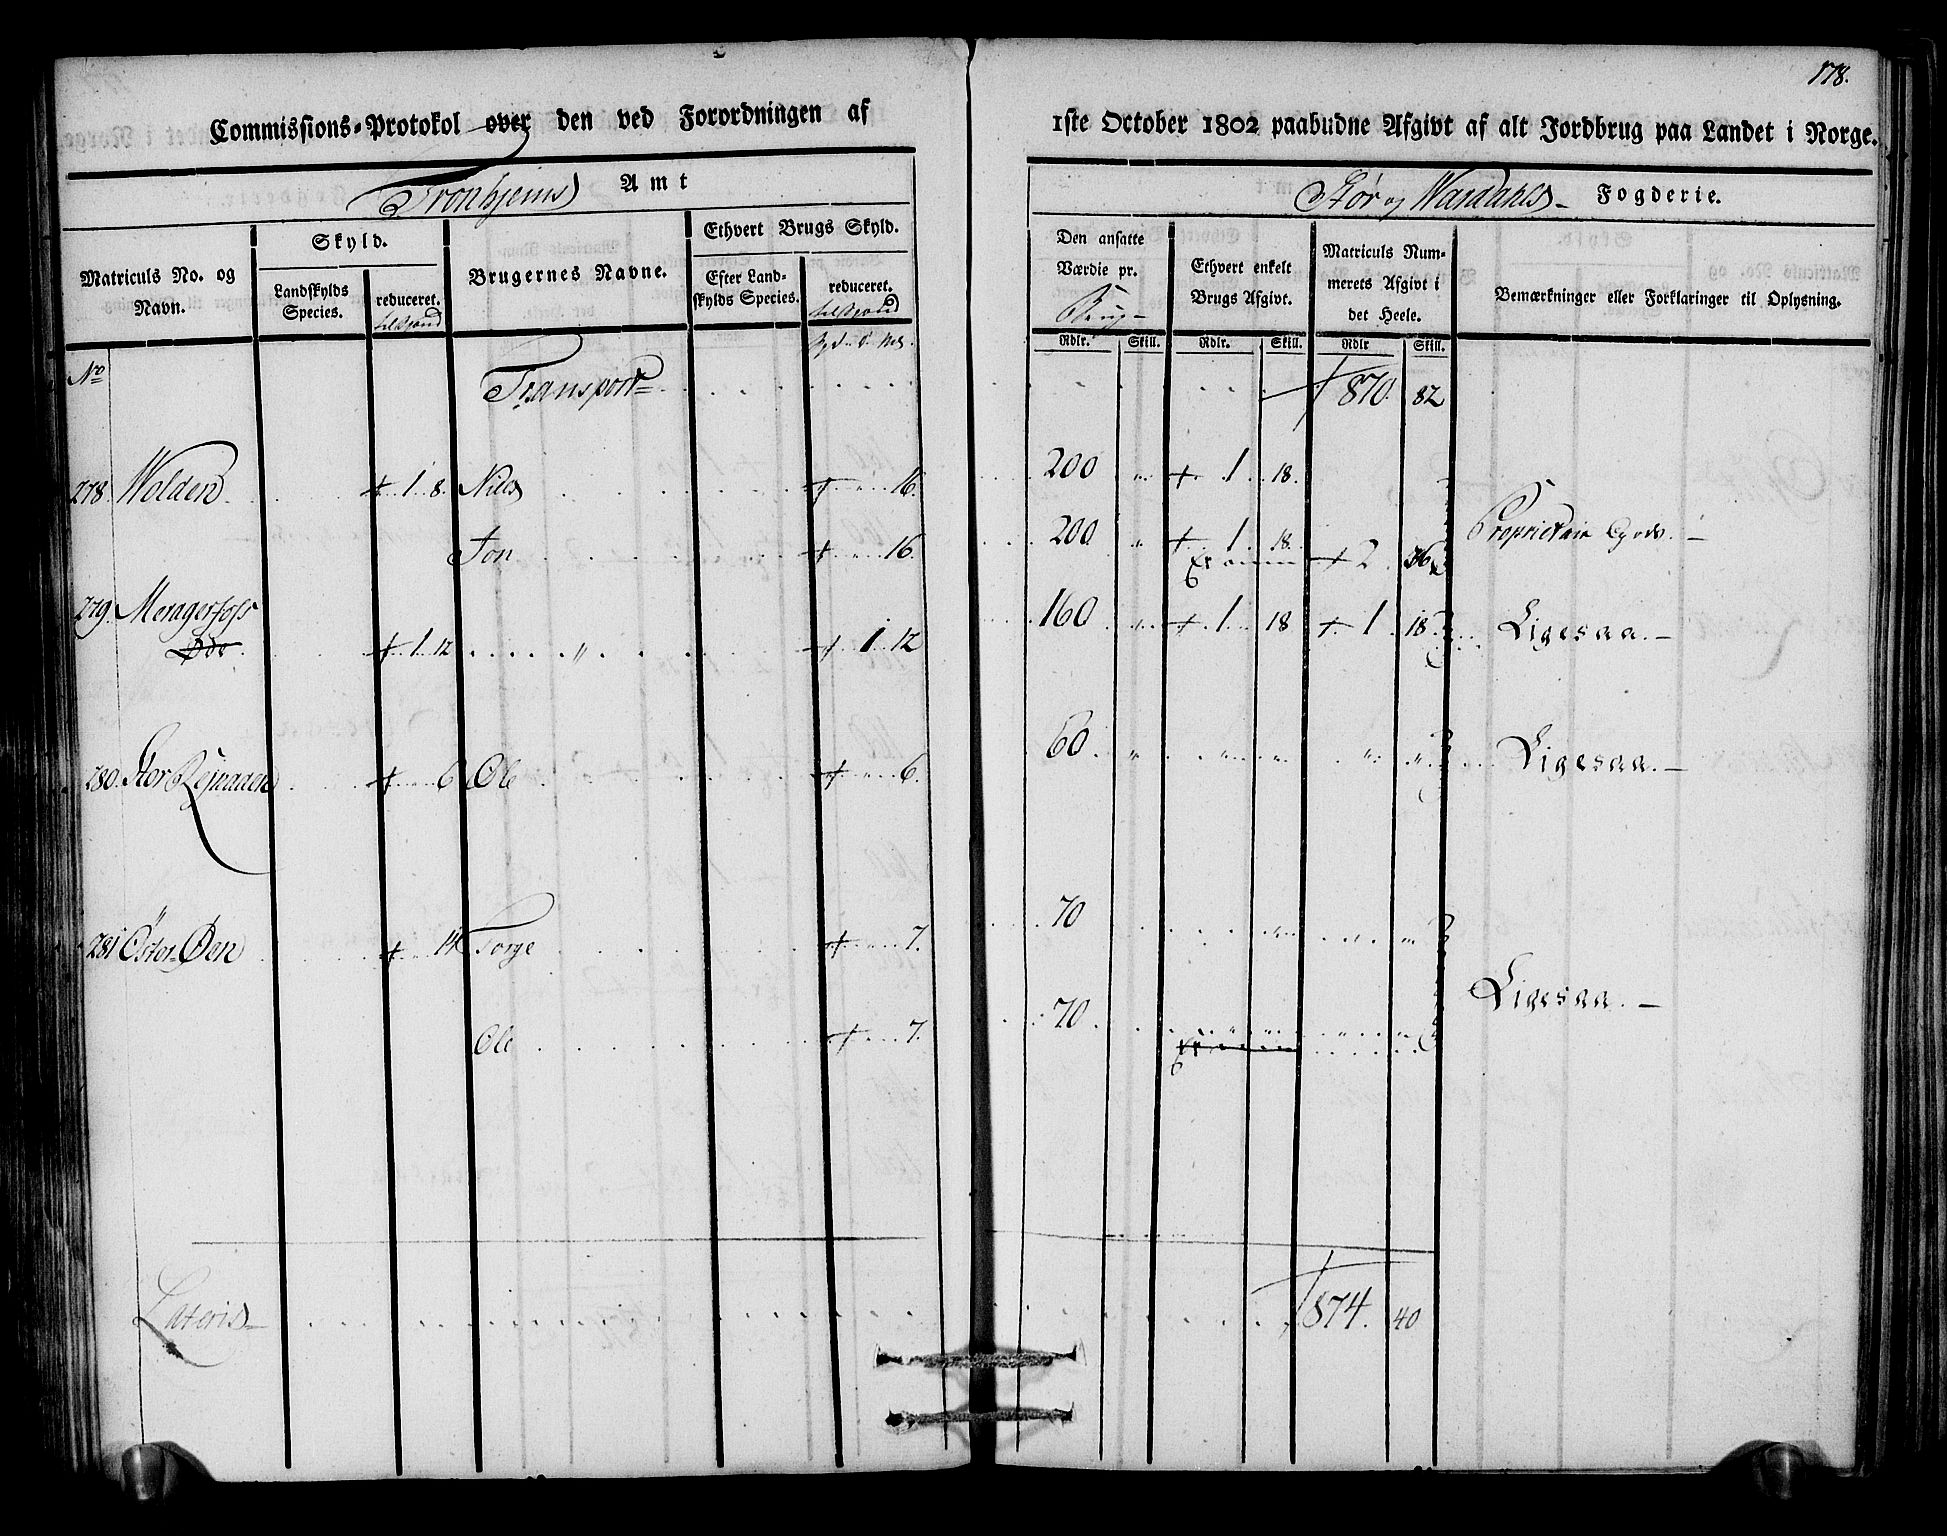 178.
Commissions-Protokol over den ved Forordningen af 1ste October 1802 paabudne Afgivt af alt Jordbrug paa Landet i Norge.
Tronhjems Amt
Stør og Wærdahls Fogderie.
Matriculs No. og Navn.
Skyld.
Landskylds Species.
reduceret.
Brugernes Navne.
Ethvert Brugs Skyld.
Efter Landskylds Species.
reduceret.
Den ansatte Værdie pr. Brug
Ethvert enkelt Brugs Afgivt.
Matriculs Nummerets Afgivt i det Heele.
Bemærkninger eller Forklaringer til Oplysning.
Rdlr. Skill. Rdlr. Skill. Rdlr Skill.
No
Transport 870. 82
278. Wolden 1. 8. Niels 16. 200 " 1. 18.
Jon 16. 200 " 1. 18.
2. 36 Proprietair Gods.
279. Meragerfoss
Øde 1. 12 " 1. 12 160 " 1. 18 1. 18. Ligesaa.
280. 6 Ole 6. 60 " " " " Ligesaa.
281 Öster Øen 14 Torge 7. 70
Ligesaa.
Ole 7. 70
Lateris 874. 40